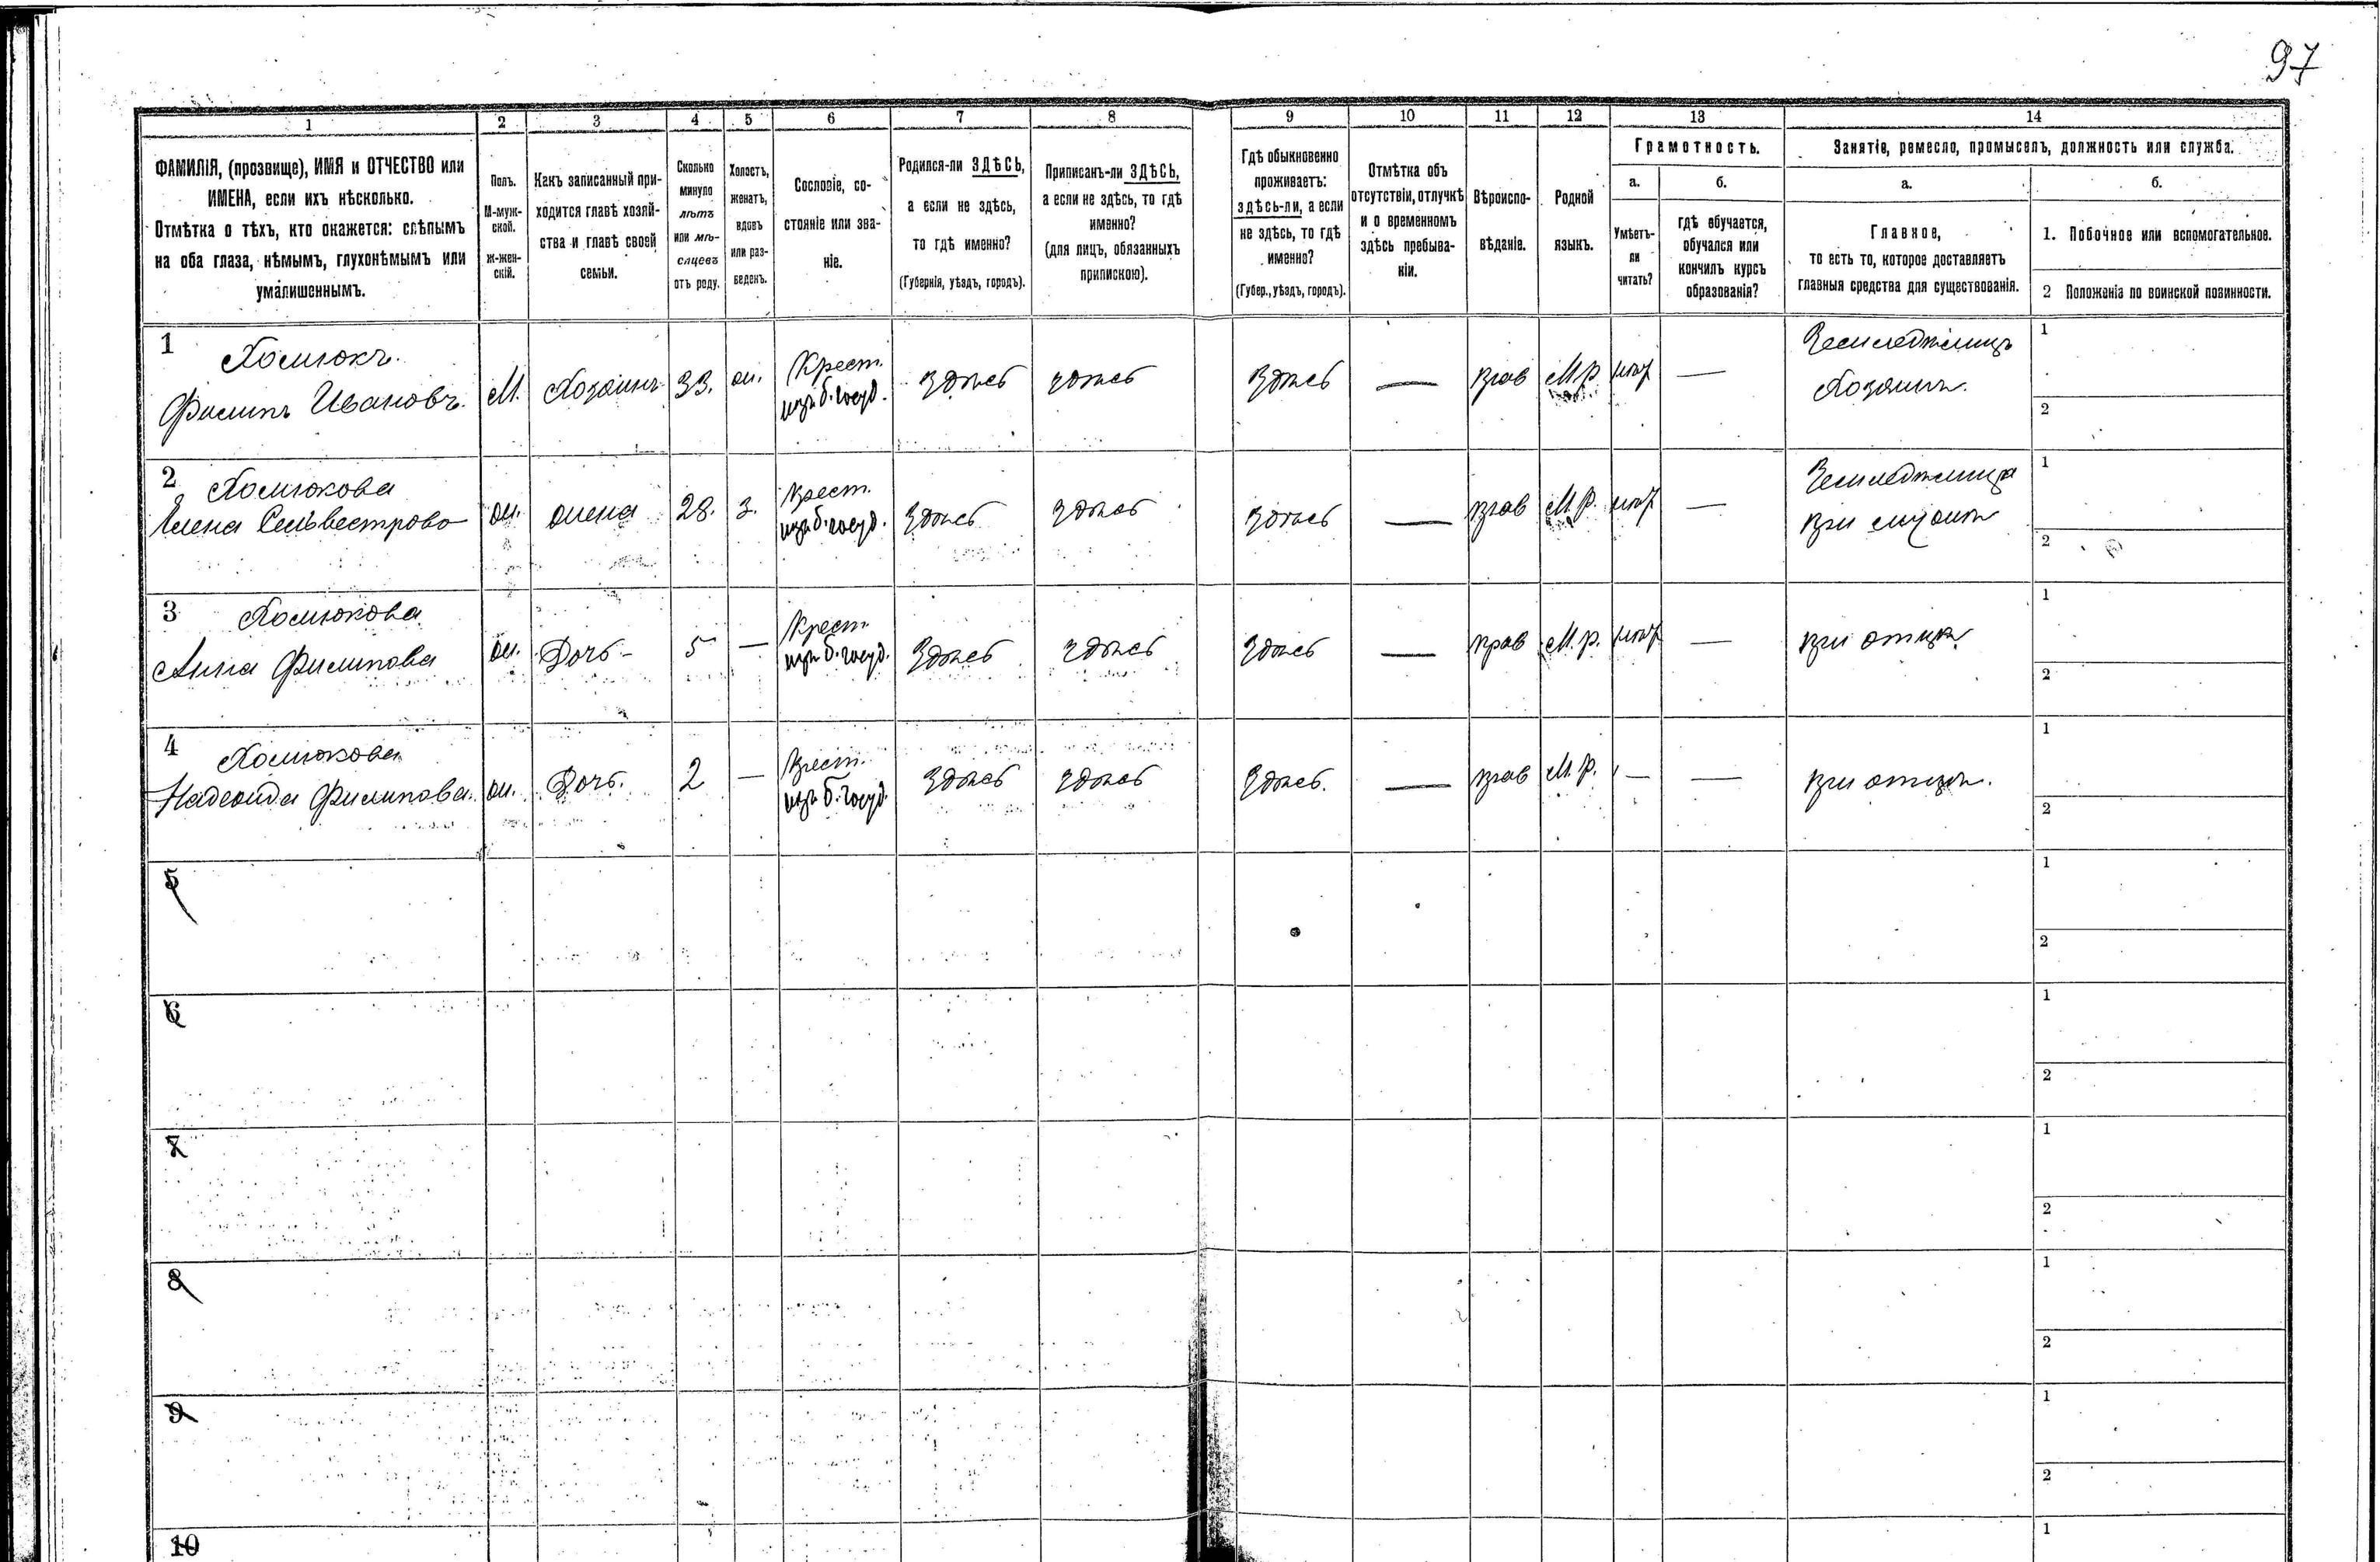 97
1 2 3 4 5 6 7 8 9 10 11 12 13 14
ФАМИЛІЯ, (прозвище), ИМЯ и ОТЧЕСТВО или
ИМЕНА, если ихъ нѣсколько.
Отмѣтка о тѣхъ, кто окажется: слѣпымъ
на оба глаза, нѣмымъ, глухонѣмымъ или
умалишеннымъ.
Полъ.
М-муж-
ской.
Ж-жен-
скій.
Какъ записанный при-
ходится главѣ хозяй-
ства и главѣ своей
семьи.
Сколько
минуло
лѣтъ
или мѣ-
сяцевъ
отъ роду.
Холостъ,
женатъ,
вдовъ
или раз-
веденъ.
Сословіе, со-
стояніе или зва-
ніе.
Родился-ли ЗДѢСЬ,
а если не здѣсь,
то гдѣ именно?
(Губернія, уѣздъ, городъ).
Приписанъ-ли ЗДѢСЬ,
а если не здѣсь, то гдѣ
именно?
(для лицъ, обязанныхъ
припискою).
Гдѣ обыкновенно
проживаетъ:
здѣсь-ли, а если
не здѣсь, то гдѣ
именно?
(Губер., уѣздъ, городъ).
Отмѣтка объ
отсутствіи, отлучкѣ
и о временномъ
здѣсь пребыва-
ніи.
Вѣроиспо-
вѣданіе.
Родной
языкъ.
Грамотность.
а.
Умѣетъ-
ли
читать?
б.
гдѣ обучается,
обучался или
кончилъ курсъ
образованія?
Занятіе, ремесло, промыселъ, должность или служба.
а.
Главное,
то есть то, которое доставляетъ
главныя средства для существованія.
б.
1. Побочное или вспомогательное.
2 Положеніе по воинской повинности.
1 Хомюкъ
Филипъ Ивановъ. М. Хозяинъ 33. ж. Крест. изъ б. госуд. здѣсь здѣсь здѣсь — прав М.р. нѣт — Земледѣлицъ
Хозяинъ.
1
2
2 Хомюкова
Елена Сельвестрова ж. жена 28. з. Крест. изъ б. госуд. здѣсь здѣсь здѣсь — прав М.р. нѣт — Земледѣлица
при мужѣ
1
2
3 Хомюкова
Анна Филипова ж. Дочь 5 — Крест изъ б. госуд. здѣсь здѣсь здѣсь — прав М.р. нѣт — при отцѣ
1
2
4 Хомюкова
Надежда Филипова. ж. Дочь. 2 — Крест. изъ б. госуд. здѣсь здѣсь здѣсь. — прав М.р. — — при отцѣ.
1
2
5
1
2
6
1
2
7
1
2
8
1
2
9
1
2
10
1